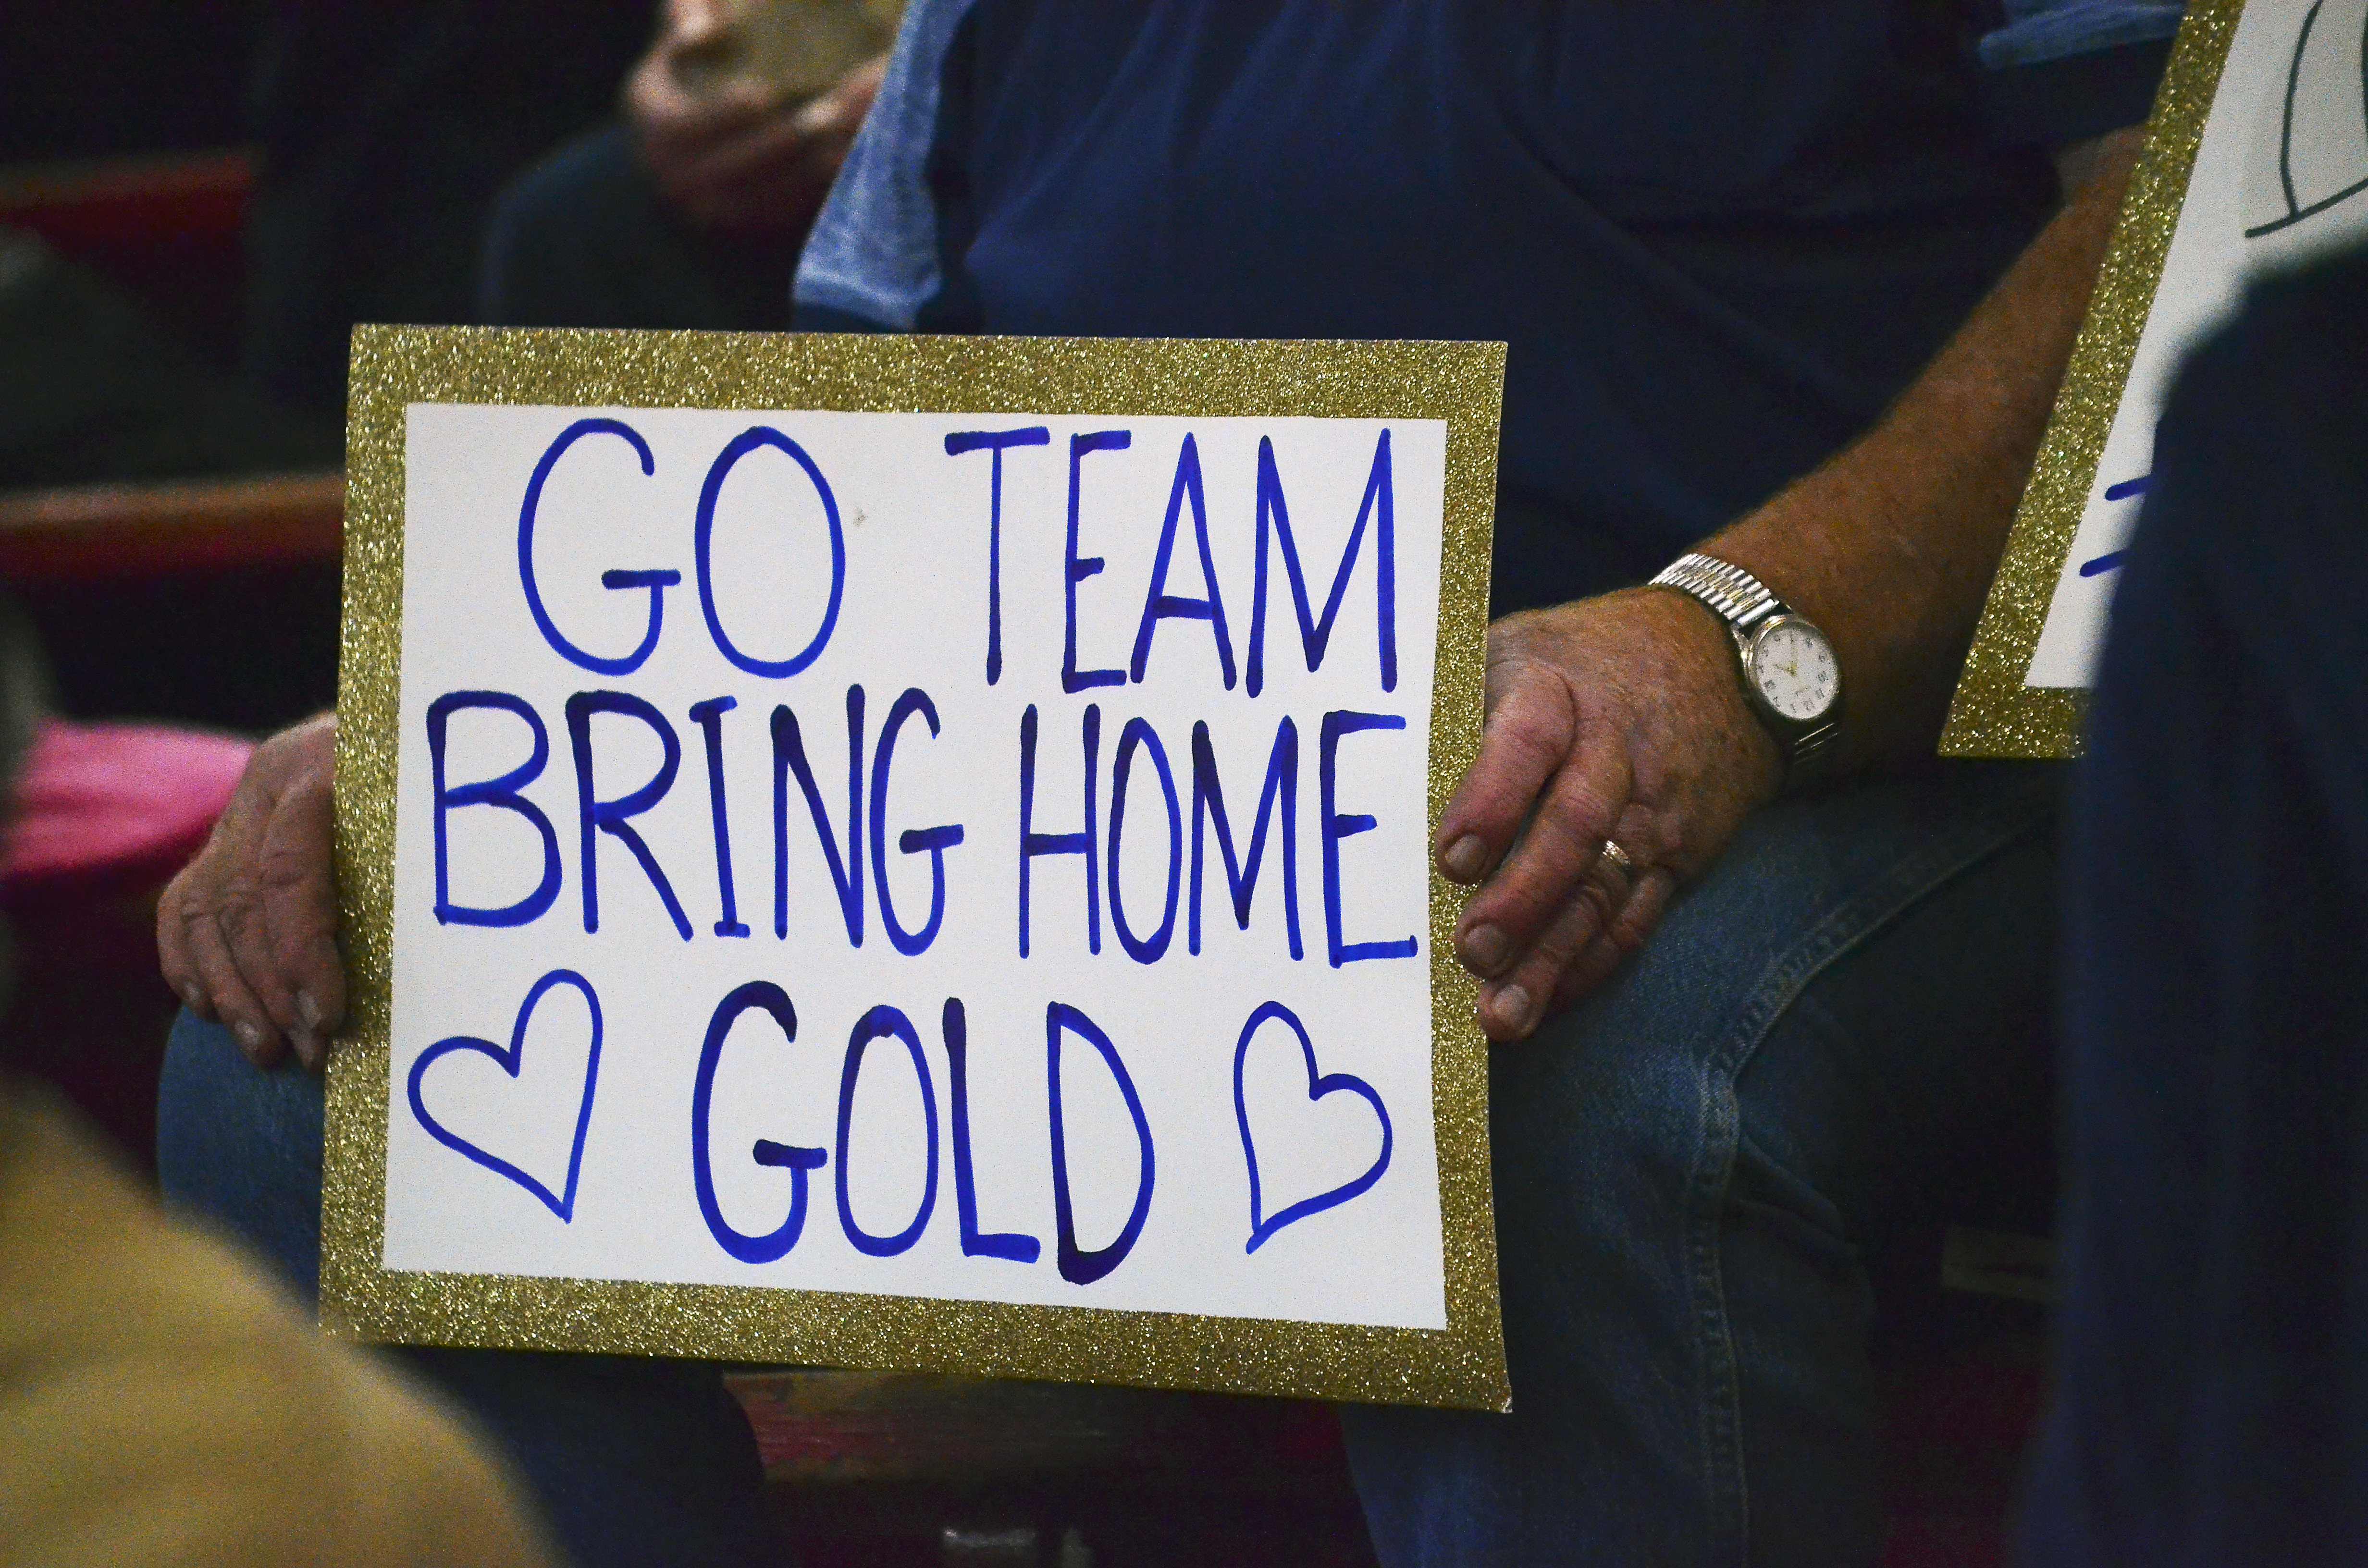 GO TEAM
BRING HOME
GOLD